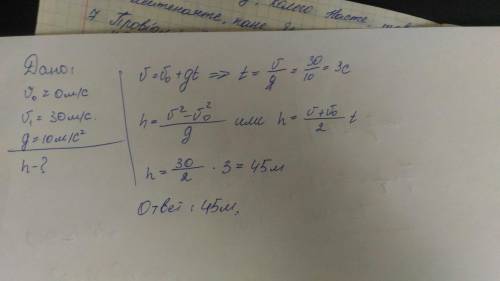 7 Пров
Дано:
υ₀ = 0м/с
υ₁ = 30м/с.
g = 10м/с²
h - ?
υ = υ₀ + gt => t = υ/g = 30/10 = 3с
h = (υ² - υ₀²)/g или h = (υ + υ₀)/2 t
h = 30/2 · 3 = 45м
Ответ: 45м,